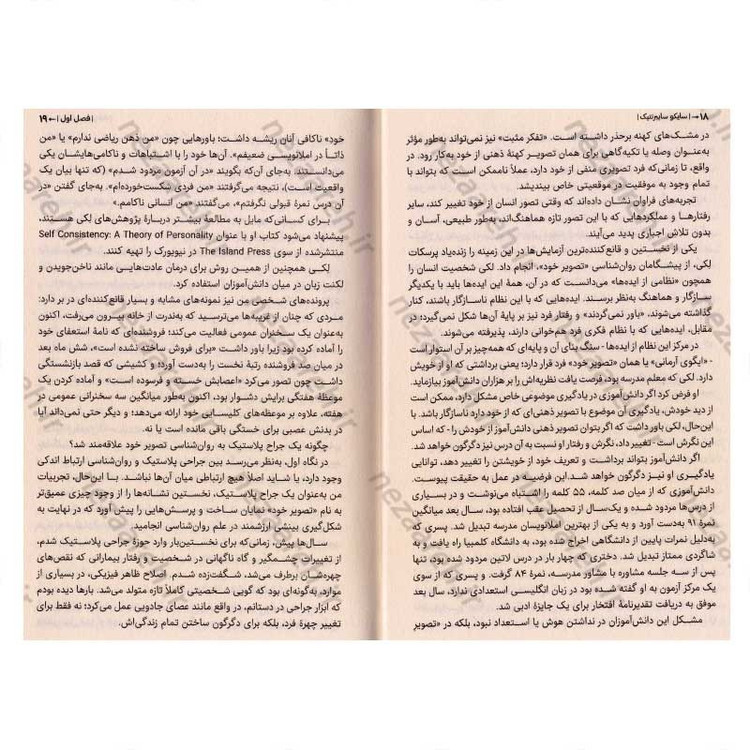 ۱۸ → | سایکو سایبرنتیک |
در مشک‌های کهنه برحذر داشته است. «تفکر مثبت» نیز نمی‌تواند به‌طور مؤثر
به‌عنوان وصله یا تکیه‌گاهی برای همان تصویر کهنهٔ ذهنی از خود به‌کار رود. در
واقع، تا زمانی‌که فرد تصویری منفی از خود دارد، عملاً ناممکن است که بتواند با
تمام وجود به موفقیت در موقعیتی خاص بیندیشد.
تجربه‌های فراوان نشان داده‌اند که وقتی تصور انسان از خود تغییر کند، سایر
رفتارها و عملکردهایی که با این تصور تازه هماهنگ‌اند، به‌طور طبیعی، آسان و
بدون تلاش اجباری پدید می‌آیند.
یکی از نخستین و قانع‌کننده‌ترین آزمایش‌ها در این زمینه را زنده‌یاد پرسکات
لکی، از پیشگامان روان‌شناسی «تصویر خود»، انجام داد. لکی شخصیت انسان را
همچون «نظامی از ایده‌ها» می‌دانست که در آن، همهٔ این ایده‌ها باید با یکدیگر
سازگار و هماهنگ به‌نظر برسند. ایده‌هایی که با این نظام ناسازگار باشند، کنار
گذاشته می‌شوند، «باور نمی‌گردند» و رفتار فرد نیز بر پایهٔ آن‌ها شکل نمی‌گیرد؛ در
مقابل، ایده‌هایی که با نظام فکری فرد هم‌خوانی دارند، پذیرفته می‌شوند.
در مرکز این نظام از ایده‌ها - سنگ بنای آن و پایه‌ای که همه‌چیز بر آن استوار است
- «ایگوی آرمانی» یا همان «تصویر خود» فرد قرار دارد؛ یعنی برداشتی که او از خویش
دارد. لکی که معلم مدرسه بود، فرصت یافت نظریه‌اش را بر هزاران دانش‌آموز بیازماید.
او فرض کرد اگر دانش‌آموزی در یادگیری موضوعی خاص مشکل دارد، ممکن است
از دید خودش، یادگیری آن موضوع با تصویر ذهنی‌ای که از خود دارد ناسازگار باشد. با
این‌حال، لکی باور داشت که اگر بتوان تصویر ذهنی دانش‌آموز از خودش را - که اساس
این نگرش است - تغییر داد، نگرش و رفتار او نسبت به آن درس نیز دگرگون خواهد شد.
اگر دانش‌آموز بتواند برداشت و تعریف خود از خویشتن را تغییر دهد، توانایی
یادگیری او نیز دگرگون خواهد شد. این فرضیه در عمل به حقیقت پیوست.
دانش‌آموزی که از میان صد کلمه، ۵۵ کلمه را اشتباه می‌نوشت و در بسیاری
از درس‌ها مردود شده و یک‌سال از تحصیل عقب افتاده بود، سال بعد میانگین
نمرهٔ ۹۱ به‌دست آورد و به یکی از بهترین املانویسان مدرسه تبدیل شد. پسری که
به‌دلیل نمرات پایین از دانشگاهی اخراج شده بود، به دانشگاه کلمبیا راه یافت و به
شاگردی ممتاز تبدیل شد. دختری که چهار بار در درس لاتین مردود شده بود، تنها
پس از سه جلسه مشاوره با مشاور مدرسه، نمرهٔ ۸۴ گرفت. و پسری که از سوی
یک مرکز آزمون به او گفته شده بود در زبان انگلیسی استعدادی ندارد، سال بعد
موفق به دریافت تقدیرنامهٔ افتخار برای یک جایزهٔ ادبی شد.
مشکل این دانش‌آموزان در نداشتن هوش یا استعداد نبود، بلکه در «تصویر
| فصل اول | ← ۱۹
خود» ناکافی آنان ریشه داشت؛ باورهایی چون «من ذهن ریاضی ندارم» یا «من
ذاتاً در املانویسی ضعیفم». آن‌ها خود را با اشتباهات و ناکامی‌هایشان یکی
می‌دانستند. به‌جای آن‌که بگویند «در آن آزمون مردود شدم» (که تنها بیان یک
واقعیت است)، نتیجه می‌گرفتند «من فردی شکست‌خورده‌ام». به‌جای گفتن «در
آن درس نمرهٔ قبولی نگرفتم»، می‌گفتند «من انسانی ناکامم.»
برای کسانی‌که مایل به مطالعهٔ بیشتر دربارهٔ پژوهش‌های لکی هستند،
پیشنهاد می‌شود کتاب او با عنوان Self Consistency: A Theory of Personality
منتشرشده از سوی The Island Press در نیویورک را تهیه کنند.
لکی همچنین از همین روش برای درمان عادت‌هایی مانند ناخن‌جویدن و
لکنت زبان در میان دانش‌آموزان استفاده کرد.
پرونده‌های شخصی من نیز نمونه‌های مشابه و بسیار قانع‌کننده‌ای در بر دارد:
مردی که چنان از غریبه‌ها می‌ترسید که به‌ندرت از خانه بیرون می‌رفت، اکنون
به‌عنوان یک سخنران عمومی فعالیت می‌کند؛ فروشنده‌ای که نامهٔ استعفای خود
را آماده کرده بود زیرا باور داشت «برای فروش ساخته نشده است»، شش ماه بعد
در میان صد فروشنده رتبهٔ نخست را به‌دست آورد؛ و کشیشی که قصد بازنشستگی
داشت چون تصور می‌کرد «اعصابش خسته و فرسوده است» و آماده کردن یک
موعظهٔ هفتگی برایش دشوار بود، اکنون به‌طور میانگین سه سخنرانی عمومی در
هفته، علاوه بر موعظه‌های کلیسایی خود ارائه می‌دهد؛ و دیگر حتی نمی‌داند آیا
در بدنش عصبی برای خستگی باقی مانده است یا نه.
چگونه یک جراح پلاستیک به روان‌شناسی تصویر خود علاقه‌مند شد؟
در نگاه اول، به‌نظر می‌رسد بین جراحی پلاستیک و روان‌شناسی ارتباط اندکی
وجود دارد، یا شاید اصلاً هیچ ارتباطی میان آن‌ها نباشد. با این‌حال، تجربیات
من به‌عنوان یک جراح پلاستیک، نخستین نشانه‌ها را از وجود چیزی عمیق‌تر
به نام «تصویر خود» نمایان ساخت و پرسش‌هایی را پیش آورد که در نهایت به
شکل‌گیری بینشی ارزشمند در علم روان‌شناسی انجامید.
سال‌ها پیش، زمانی‌که برای نخستین‌بار وارد حوزهٔ جراحی پلاستیک شدم،
از تغییرات چشمگیر و گاه ناگهانی در شخصیت و رفتار بیمارانی که نقص‌های
چهره‌شان برطرف می‌شد، شگفت‌زده شدم. اصلاح ظاهر فیزیکی، در بسیاری از
موارد، به‌گونه‌ای بود که گویی شخصیتی کاملاً تازه متولد می‌شد. بارها دیده بودم
که ابزار جراحی در دستانم، در واقع مانند عصای جادویی عمل می‌کرد؛ نه فقط برای
تغییر چهرهٔ فرد، بلکه برای دگرگون ساختن تمام زندگی‌اش.